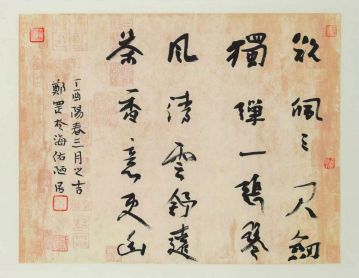 佩三尺劍
獨彈一張琴
風清雲舒遠
茶香意更幽
丁酉陽春三月之吉
鄭罡於海佑陋居